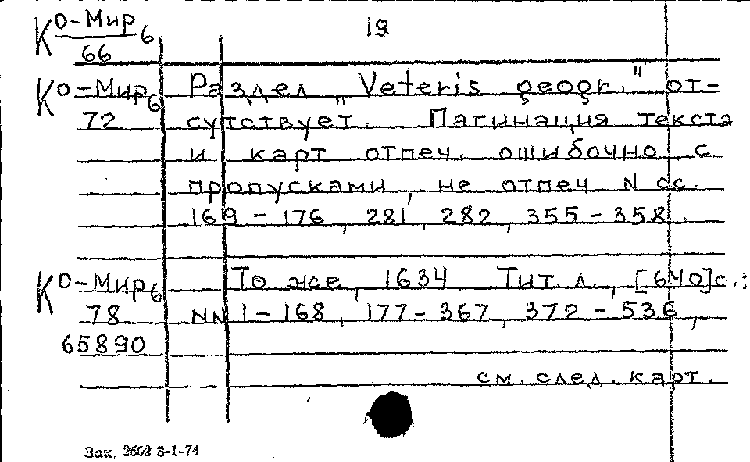 КО-Мир 6 19
66
КО-Мир 6 Раздел „Veteris geogr." от-
72 сутствует. Пагинация текста
и карт отпеч. ошибочно с
пропусками, не отпеч NN сс.
169-176, 281, 282, 355-358.
КО-Мир 6 То же, 1634 Тит. л., [640]с.:
78 NN 1-168, 177-367, 372-536,
65890
см. след. карт.
Зак. 2662 8-1-74